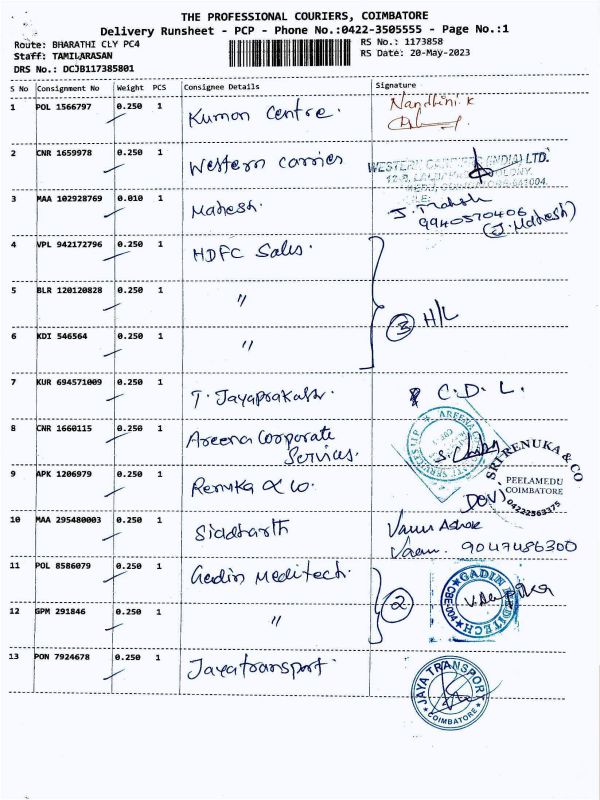 THE PROFESSIONAL COURIERS, COIMBATORE
Delivery Runsheet - PCP - Phone No.:0422-3505555 - Page No.:1
Route: BHARATHI CLY PC4
RS No.: 1173858
Staff: TAMILARASAN
RS Date: 20-May-2023
DRS No.: DCJB117385801
S No Consignment No Weight PCS Consignee Details Signature
1 POL 1566797 0.250 1 Kumon Centre. Nandhini.K
2 CNR 1659978 0.250 1 Western Carriers
WESTERN CARRIERS (INDIA) LTD.
3 MAA 102928769 0.010 1 Mahesh.
9940570406
(J. Mahesh)
4 VPL 942172796 0.250 1 HDFC Sales.
5 BLR 120120828 0.250 1 〃 3 H/L
6 KDI 546564 0.250 1 〃
7 KUR 694571009 0.250 1 T. Jayaprakash C.D.L.
8 CNR 1660115 0.250 1 Areena Corporate
Services.
9 APK 1206979 0.250 1 Renuka & Co.
SRI RENUKA & CO
PEELAMEDU
COIMBATORE
04222563375
10 MAA 295480003 0.250 1 Siddharth
9047486300
11 POL 8586079 0.250 1 Gadin Meditech.
GADIN MEDITECH
CBE-004
12 GPM 291846 0.250 1 〃 2
13 PON 7924678 0.250 1 Jayatransport.
JAYA TRANSPORT
COIMBATORE